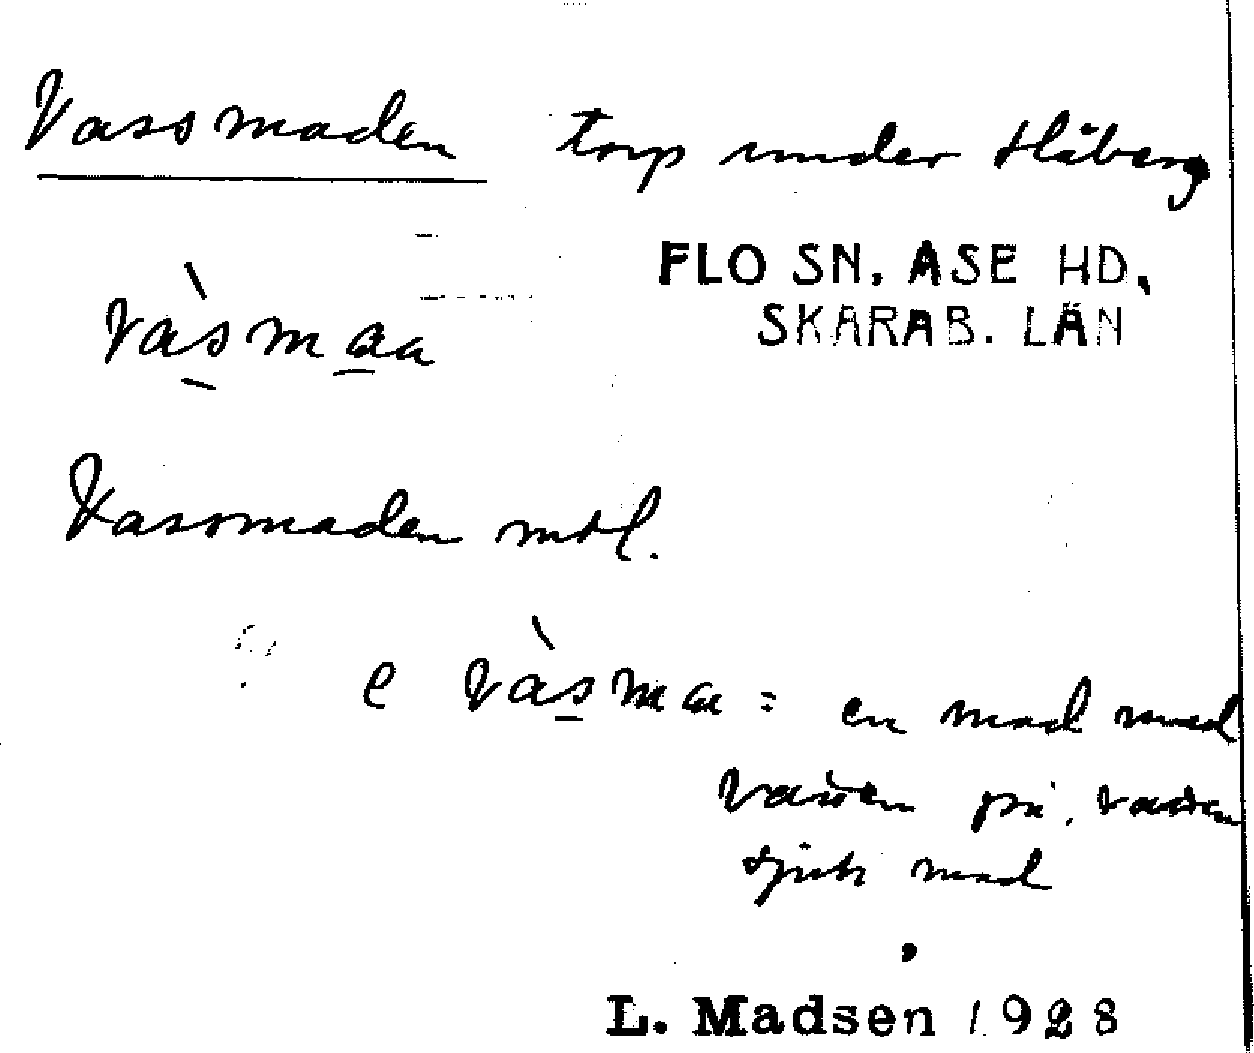 Vassmaden torp under Håberg
FLO SN. ASE HD,
SKARAB. LÄN
vàsmaa
Vassmaden mtl.
e vàsmaa = en mad med
vatten på, vatten
sjuk mad
L. Madsen 1928